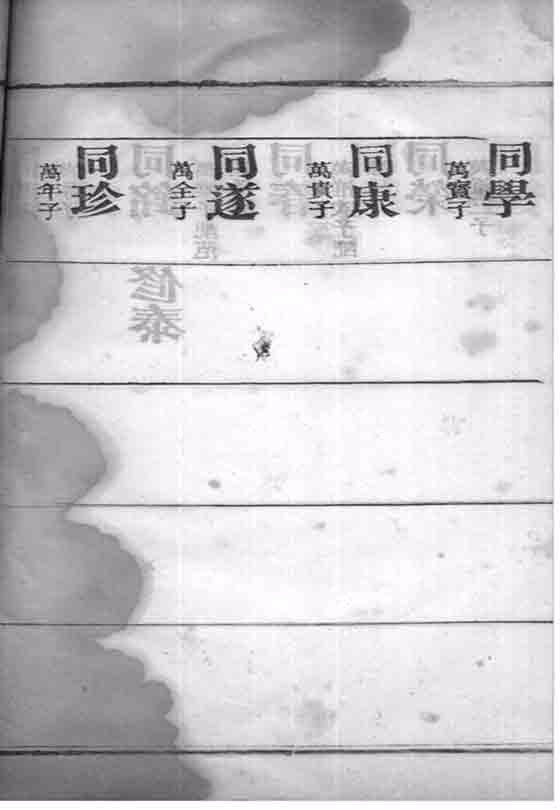 同學
萬寶子
同康
萬貴子
同遂
萬全子
同珍
萬年子